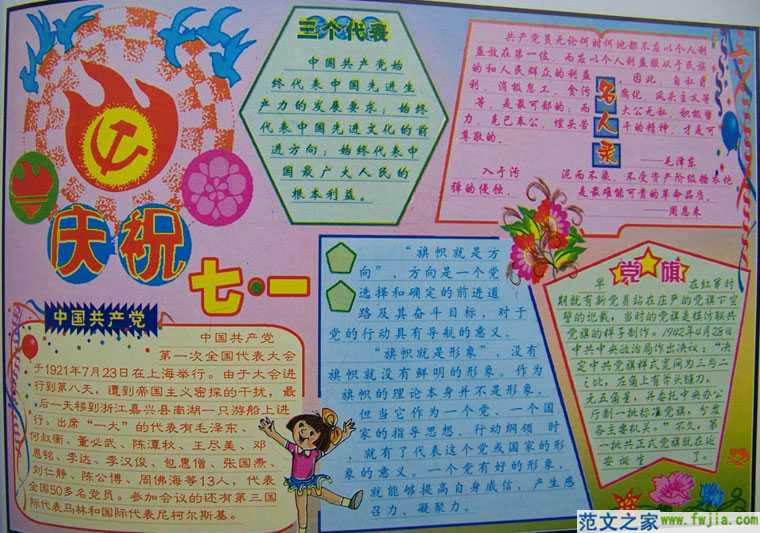 庆祝
七·一
三个代表
中国共产党始
终代表中国先进生
产力的发展要求;始终
代表中国先进文化的前
进方向;始终代表中
国最广大人民的
根本利益。
名人录
共产党员无论何时何地都不应以个人利
益放在第一位,而应以个人利益服从于民族
的和人民群众的利益。因此,自私自
利,消极怠工,贪污腐化,风头主义等
等,是最可鄙的;而大公无私,积极努
力,克己奉公,埋头苦干的精神,才是可
尊敬的。
——毛泽东
入于污泥而不染,不受资产阶级糖衣炮
弹的侵蚀,是最难能可贵的革命品质。
周恩来
中国共产党
中国共产党
第一次全国代表大会
于1921年7月23日在上海举行。由于大会进
行到第八天,遭到帝国主义密探的干扰,最
后一天移到浙江嘉兴县南湖一只游船上进
行。出席“一大”的代表有毛泽东、
何叔衡、董必武、陈潭秋、王尽美、邓
恩铭、李达、李汉俊、包惠僧、张国焘、
刘仁静、陈公博、周佛海等13人,代表
全国50多名党员。参加会议的还有第三国
际代表马林和国际代表尼柯尔斯基。
“旗帜就是方
向”,方向是一个党
选择和确定的前进道
路及其奋斗目标,对于
党的行动具有导航的意义。
“旗帜就是形象”,没有
旗帜就没有鲜明的形象。作为
旗帜的理论本身并不是形象,
但当它作为一个党、一个国
家的指导思想、行动纲领时
,就有了代表这个党或国家的形
象的意义。一个党有好的形象,
就能够提高自身威信,产生感
召力、凝聚力。
党旗
早在红军时
期就有新党员站在庄严的党旗下宣
誓的记载,当时的党旗是模仿联共
党旗的样子制作。1942年4月28日
中共中央政治局作出决议:“决
定中共党旗样式宽阔为三与二
之比,在角上有斧头镰刀,
无五角星,并委托中央办公
厅制一批标准党旗,分发
各主要机关。”不久,第
一批共正式党旗就在延
安诞生了。
范文之家 www.fwjia.com